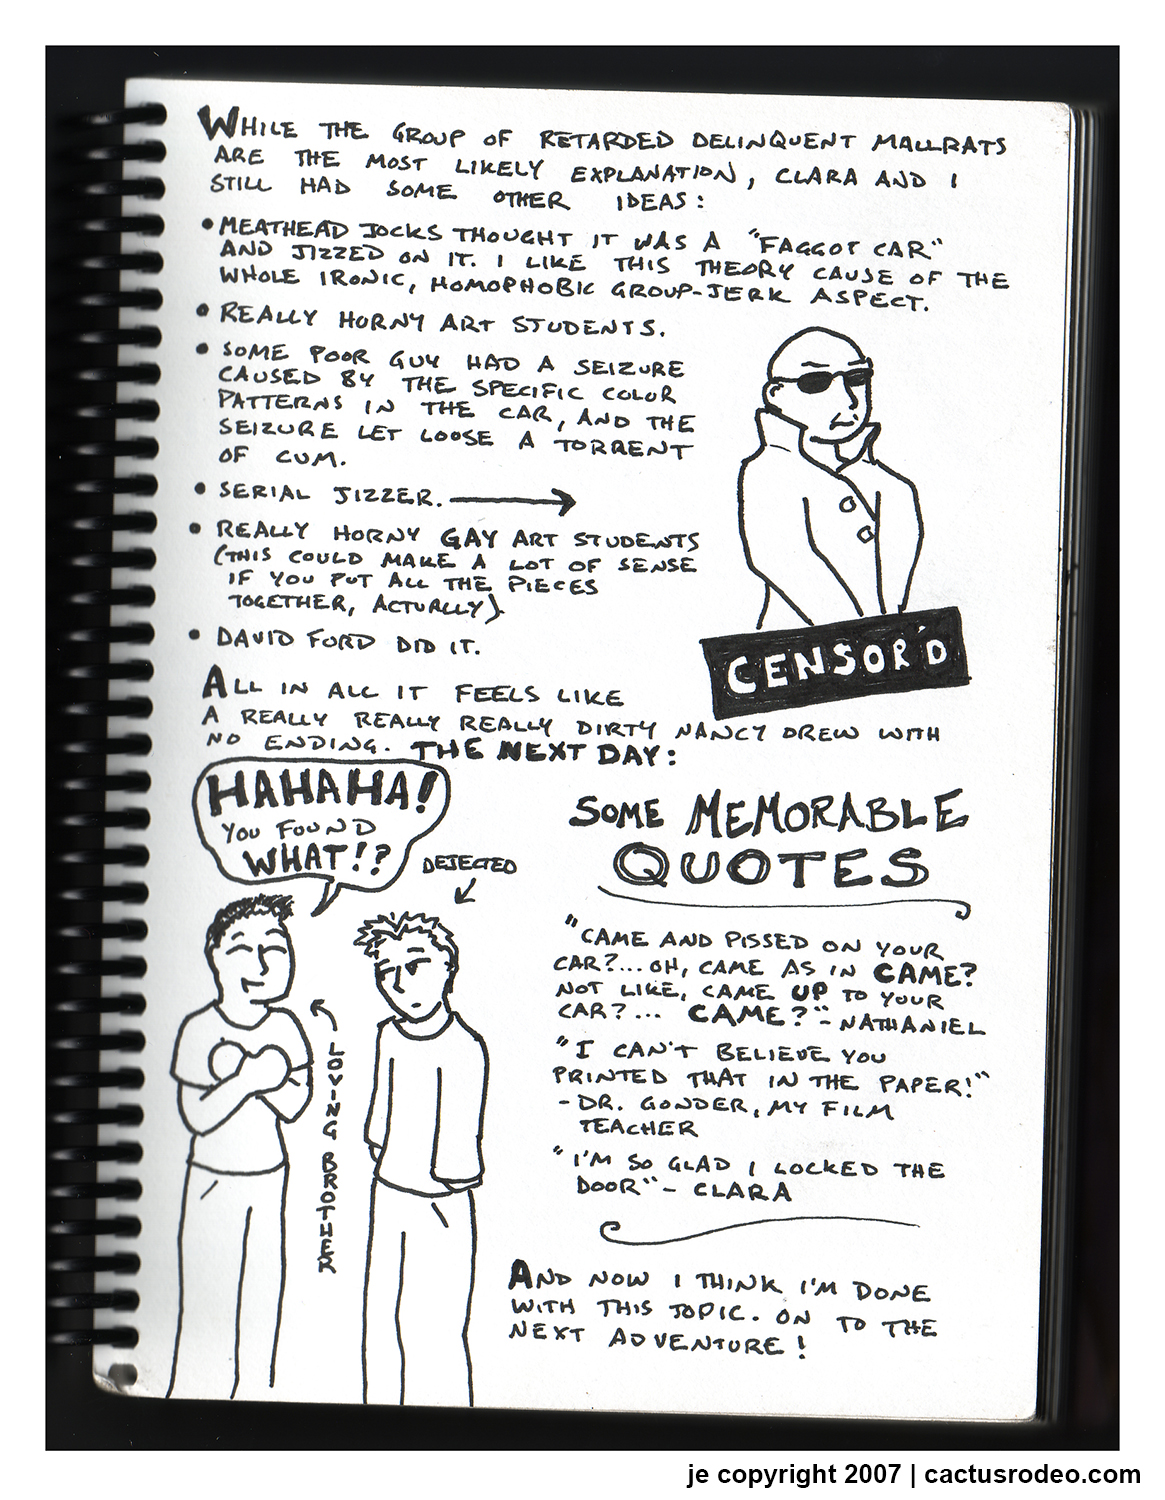 WHILE THE GROUP OF RETARDED DELINQUENT MALLRATS
ARE THE MOST LIKELY EXPLANATION, CLARA AND I
STILL HAD SOME OTHER IDEAS:
• MEATHEAD JOCKS THOUGHT IT WAS A "FAGGOT CAR"
AND JIZZED ON IT. I LIKE THIS THEORY CAUSE OF THE
WHOLE IRONIC, HOMOPHOBIC GROUP-JERK ASPECT.
• REALLY HORNY ART STUDENTS.
• SOME POOR GUY HAD A SEIZURE
CAUSED BY THE SPECIFIC COLOR
PATTERNS IN THE CAR, AND THE
SEIZURE LET LOOSE A TORRENT
OF CUM.
• SERIAL JIZZER.
• REALLY HORNY GAY ART STUDENTS
(THIS COULD MAKE A LOT OF SENSE
IF YOU PUT ALL THE PIECES
TOGETHER, ACTUALLY).
• DAVID FORD DID IT.
CENSOR'D
ALL IN ALL IT FEELS LIKE
A REALLY REALLY REALLY DIRTY NANCY DREW WITH
NO ENDING. THE NEXT DAY:
HAHAHA!
YOU FOUND
WHAT!?
DEJECTED
LOVING BROTHER
SOME MEMORABLE
QUOTES
"CAME AND PISSED ON YOUR
CAR?... OH, CAME AS IN CAME?
NOT LIKE, CAME UP TO YOUR
CAR?... CAME?" - NATHANIEL
"I CAN'T BELIEVE YOU
PRINTED THAT IN THE PAPER!"
- DR. GONDER, MY FILM
TEACHER
"I'M SO GLAD I LOCKED THE
DOOR" - CLARA
AND NOW I THINK I'M DONE
WITH THIS TOPIC. ON TO THE
NEXT ADVENTURE!
je copyright 2007 | cactusrodeo.com